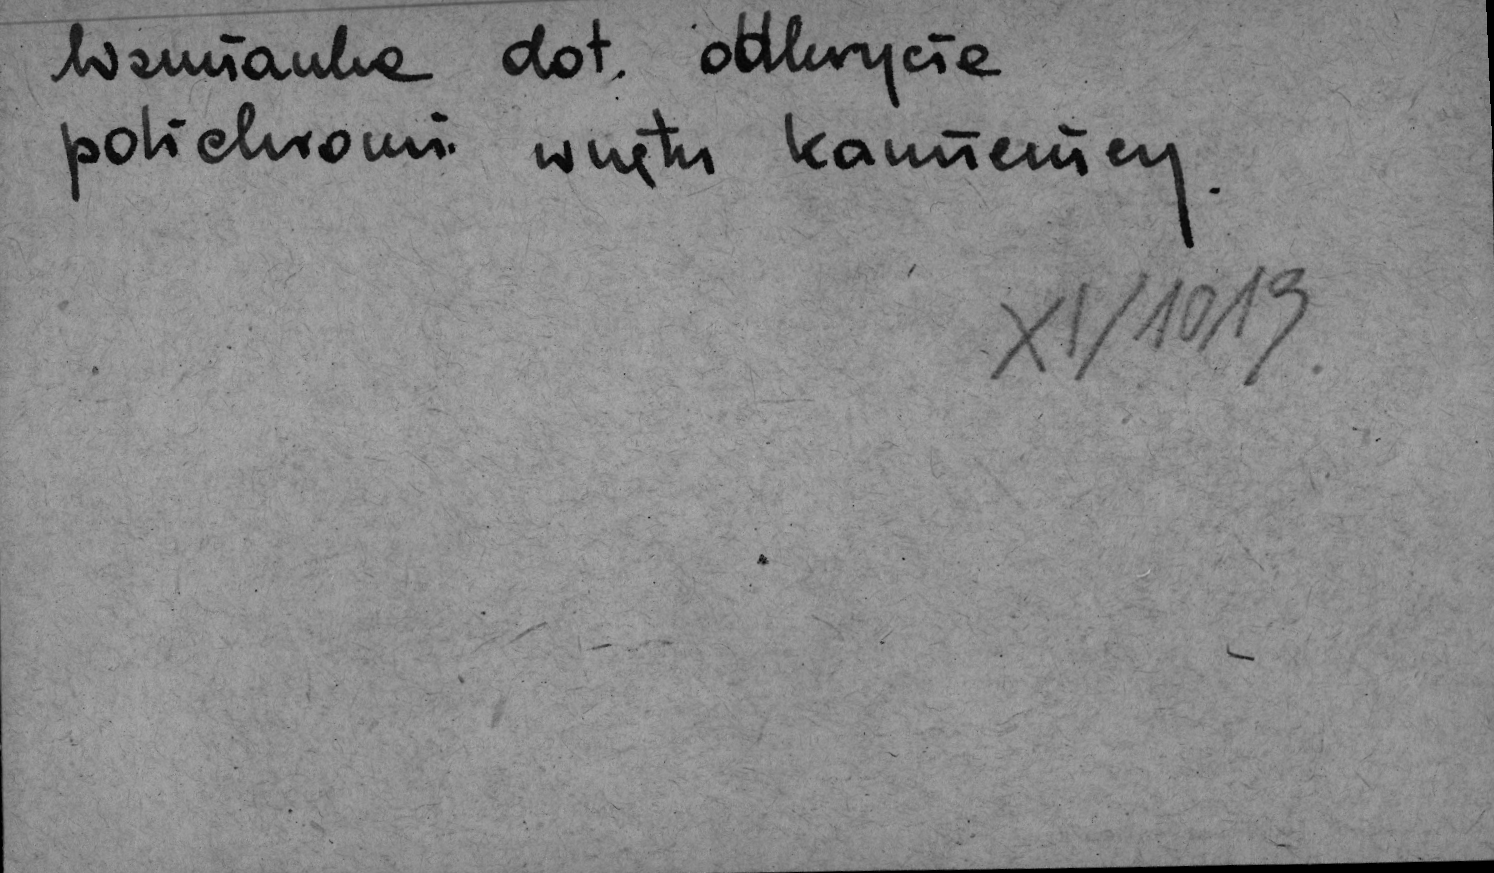 Wzmianka dot. odkrycia
polichromi wnętrz kamienicy.
XI/1019.